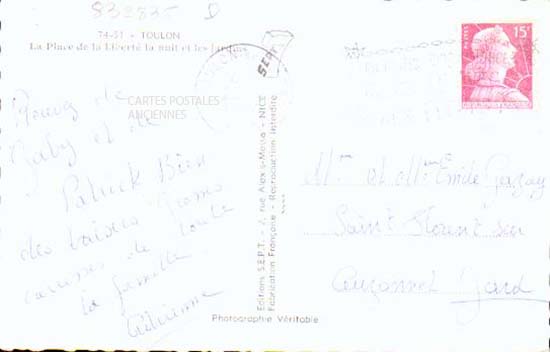 832835 D
74-51 - TOULON
La Place de la Liberté la nuit et les jardins
TOULON
SEPT
15F
CARTES POSTALES
ANCIENNES
Gaby et de
Patrick Bien
des baisers Grosses
caresses de toute
la famille
Editions S.E.P.T. - 7, rue Alex s-Massa - NICE
Fabrication Française - Reproduction Interdite
Mr et Mme Emile
Saint Florent sur
Auzonnet Gard
Photographie Véritable